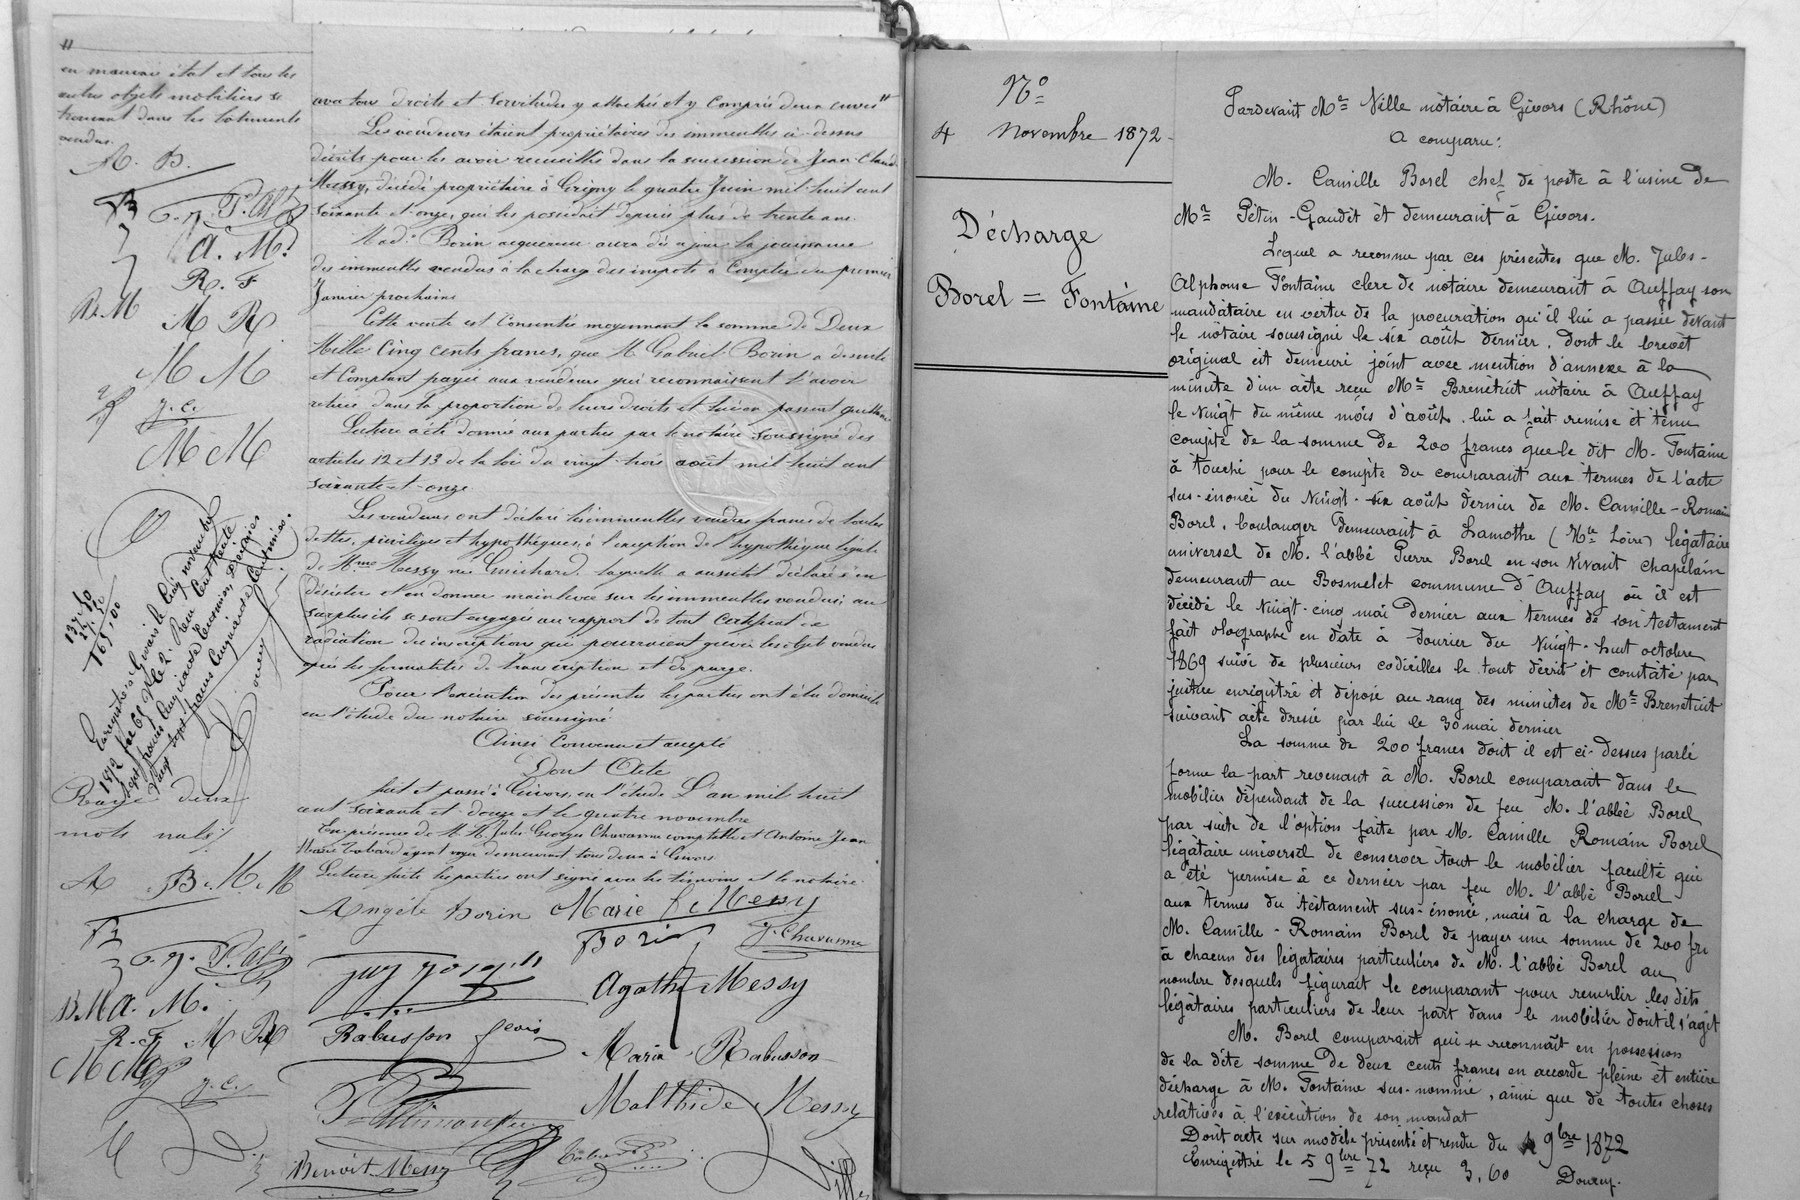 "
en mauvais état et tous les
autres objets mobiliers se
trouvant dans les batiments
vendus.
A. B.
A. M.
R. F
B. M
M R
M M
J. C.
M M
137,50
27,50
165,00
Enregistré à Givors le cinq novembre
1872 f° 69 V° C 2. Reçu cent trente
sept francs cinquante centimes, décimes
vingt sept francs cinquante centimes.
Douxy
Rayé deux
mots nuls
avec tous droits et servitudes y attachés et y compris deux cuves "
Les vendeurs étaient propriétaires des immeubles ci-dessus
décrits pour les avoir recueillis dans la succession de Jean Claude
Messy, décédé propriétaire à Grigny le quatre Juin mil huit cent
soixante et onze, qui les possédait depuis plus de trente ans.
Mad. Borin acquereur aura dès ce jour la jouissance
des immeubles vendus à la charge des impots à compter du premier
Janvier prochain
Cette vente est consentie moyennant la somme de Deux
Mille Cinq cents francs, que M. Gabriel Borin a de suite
et comptant payée aux vendeurs qui reconnaissent l'avoir
retirée dans la proportion de leurs droits et lui en passent quittance
Lecture a été donnée aux parties par le notaire soussigné des
articles 12 et 13 de la loi du vingt trois août mil huit cent
soixante et onze
Les vendeurs ont déclaré les immeubles vendus francs de toutes
dettes, privilèges et hypothèques, à l'exception de l'hypothèque légale
de Mme Messy née Guichard, laquelle a aussitôt déclaré s'en
désister et en donner mainlevée sur les immeubles vendus; au
surplus ils se sont engagés au rapport de tout certificat de
radiation des inscriptions qui pourraient grever les objets vendus
après les formalités de transcription et de purge.
Pour l'exécution des présentes les parties ont élu domicile
en l'étude du notaire soussigné
Ainsi convenu et accepté
Dont Acte
fait et passé à Givors, en l'étude L'an mil huit
cent soixante et douze et le quatre novembre
En présence de M.M. Jules Georges Chavanne comptable et Antoine Jean
Marie Tabard agent voyer demeurant tous deux à Givors
Lecture faite les parties ont signé avec les témoins et le notaire.
Angéle Borin Marie Messy
Borin J. Chavanne
Guy Joseph
Agathe Messy
Rabusson
Maria Rabusson
Malthide Messy
Benoit Messy
N°
4 Novembre 1872.
Décharge
Borel = Fontaine
Pardevant Me Ville notaire à Givors (Rhône)
A comparu:
M. Camille Borel chef de poste à l'usine de
Mr Pétin-Gaudet et demeurant à Givors.
Lequel a reconnu par ces présentes que M. Jules-
Alphonse Fontaine clerc de notaire demeurant à Auffay son
mandataire en vertu de la procuration qu'il lui a passée devant
le notaire soussigné le six août dernier, dont le brevet
original est demeuré joint avec mention d'annexe à la
minute d'un acte reçu Me Brenétuit notaire à Auffay
le vingt du même mois d'août, lui a fait remise et tenu
compte de la somme de 200 francs que le dit M. Fontaine
à touché pour le compte du comparant aux termes de l'acte
sus-énoncé du vingt-six août dernier de M. Camille-Romain
Borel, boulanger demeurant à Lamothe (Hte Loire) légataire
universel de M. l'abbé Pierre Borel en son vivant chapelain
demeurant au Bosmelet commune d'Auffay où il est
décédé le vingt-cinq mai dernier aux termes de son testament
fait olographe en date à du vingt-huit octobre
1869 suivi de plusieurs codicilles le tout décrit et constaté par
justice enregistré et déposé au rang des minutes de Me Brenétuit
suivant acte dressé par lui le 30 mai dernier
La somme de 200 francs dont il est ci-dessus parlé
forme la part revenant à M. Borel comparant dans le
mobilier dépendant de la succession de feu M. l'abbé Borel
par suite de l'option faite par M. Camille Romain Borel
légataire universel de conserver tout le mobilier faculté qui
a été permise à ce dernier par feu M. l'abbé Borel
aux termes du testament sus-énoncé, mais à la charge de
M. Camille-Romain Borel de payer une somme de 200 frs
à chacun des légataires particuliers de M. l'abbé Borel au
nombre desquels figurait le comparant pour remplir les dits
légataires particuliers de leur part dans le mobilier dont il s'agit
M. Borel comparant qui se reconnait en possession
de la dite somme de deux cents francs en accorde pleine et entière
décharge à M. Fontaine sus-nommé, ainsi que de toutes choses
relatives à l'exécution de son mandat
Dont acte sur modèle présenté et rendu du 4 9bre 1872
Enregistré le 5 9bre 72 reçu 3,60 Douxy.